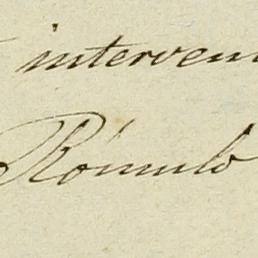 interven
Rómulo